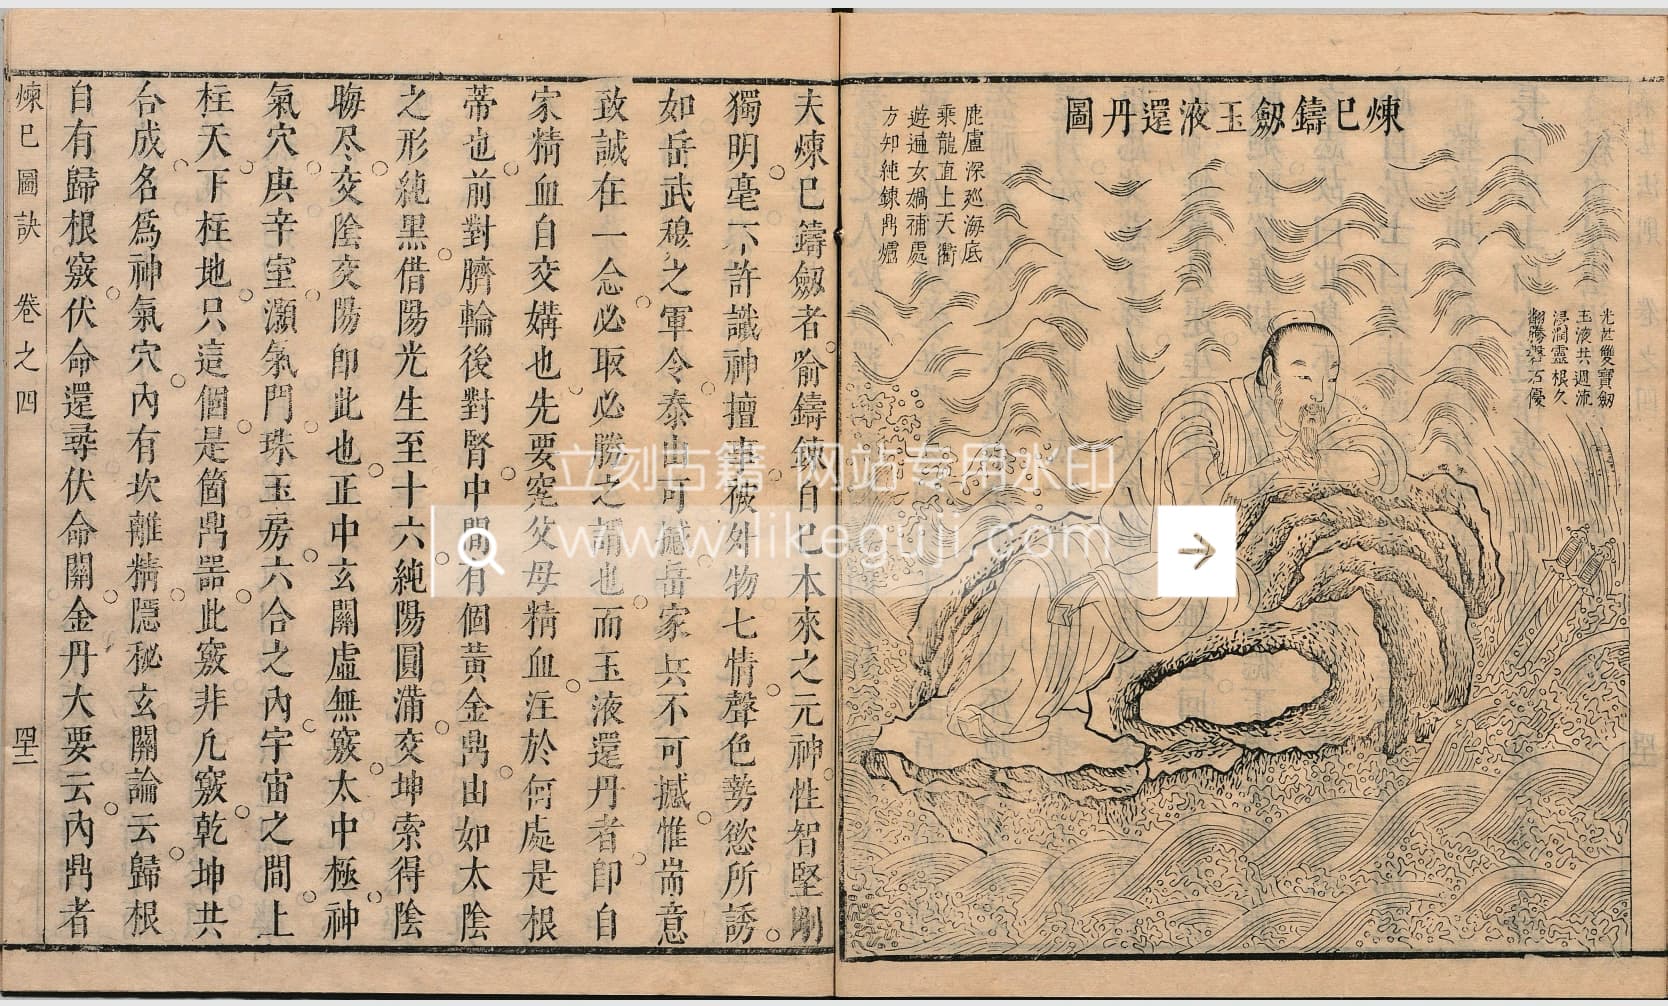 煉巳鑄劔玉液還丹圖
光芒雙寶劔
玉液共週流
浸潤靈根久
鹿盧深廵海底
乘龍直上天衢
遊遍女媧補處
方知純鍊鼎爐
夫煉巳鑄劔者喻鑄鍊自巳本來之元神性智堅剛
獨明毫不許識神擅專被外物七情聲色勢慾所誘
如岳武穆之軍令泰山可撼岳家兵不可撼惟耑意
致誠在一念必取必勝之謂也而玉液還丹者即自
家精血自交媾也先要窮父母精血注於何處是根
蒂也前對臍輪後對腎中間有個黃金鼎由如太陰
之形純黑借陽光生至十六純陽圓滿交坤索得陰
晦尽交陰交陽即此也正中玄關虛無竅太中極神
氣穴庚辛室灝氣門珠玉房六合之內宇宙之間上
柱天下柱地只這個是箇鼎器此竅非凢竅乾坤共
合成名爲神氣穴內有坎離精隱秘玄關論云歸根
自有歸根竅伏命還尋伏命關金丹大要云內鼎者
煉巳圖訣 卷之四
立刻古籍 网站专用水印
www.likeguji.com